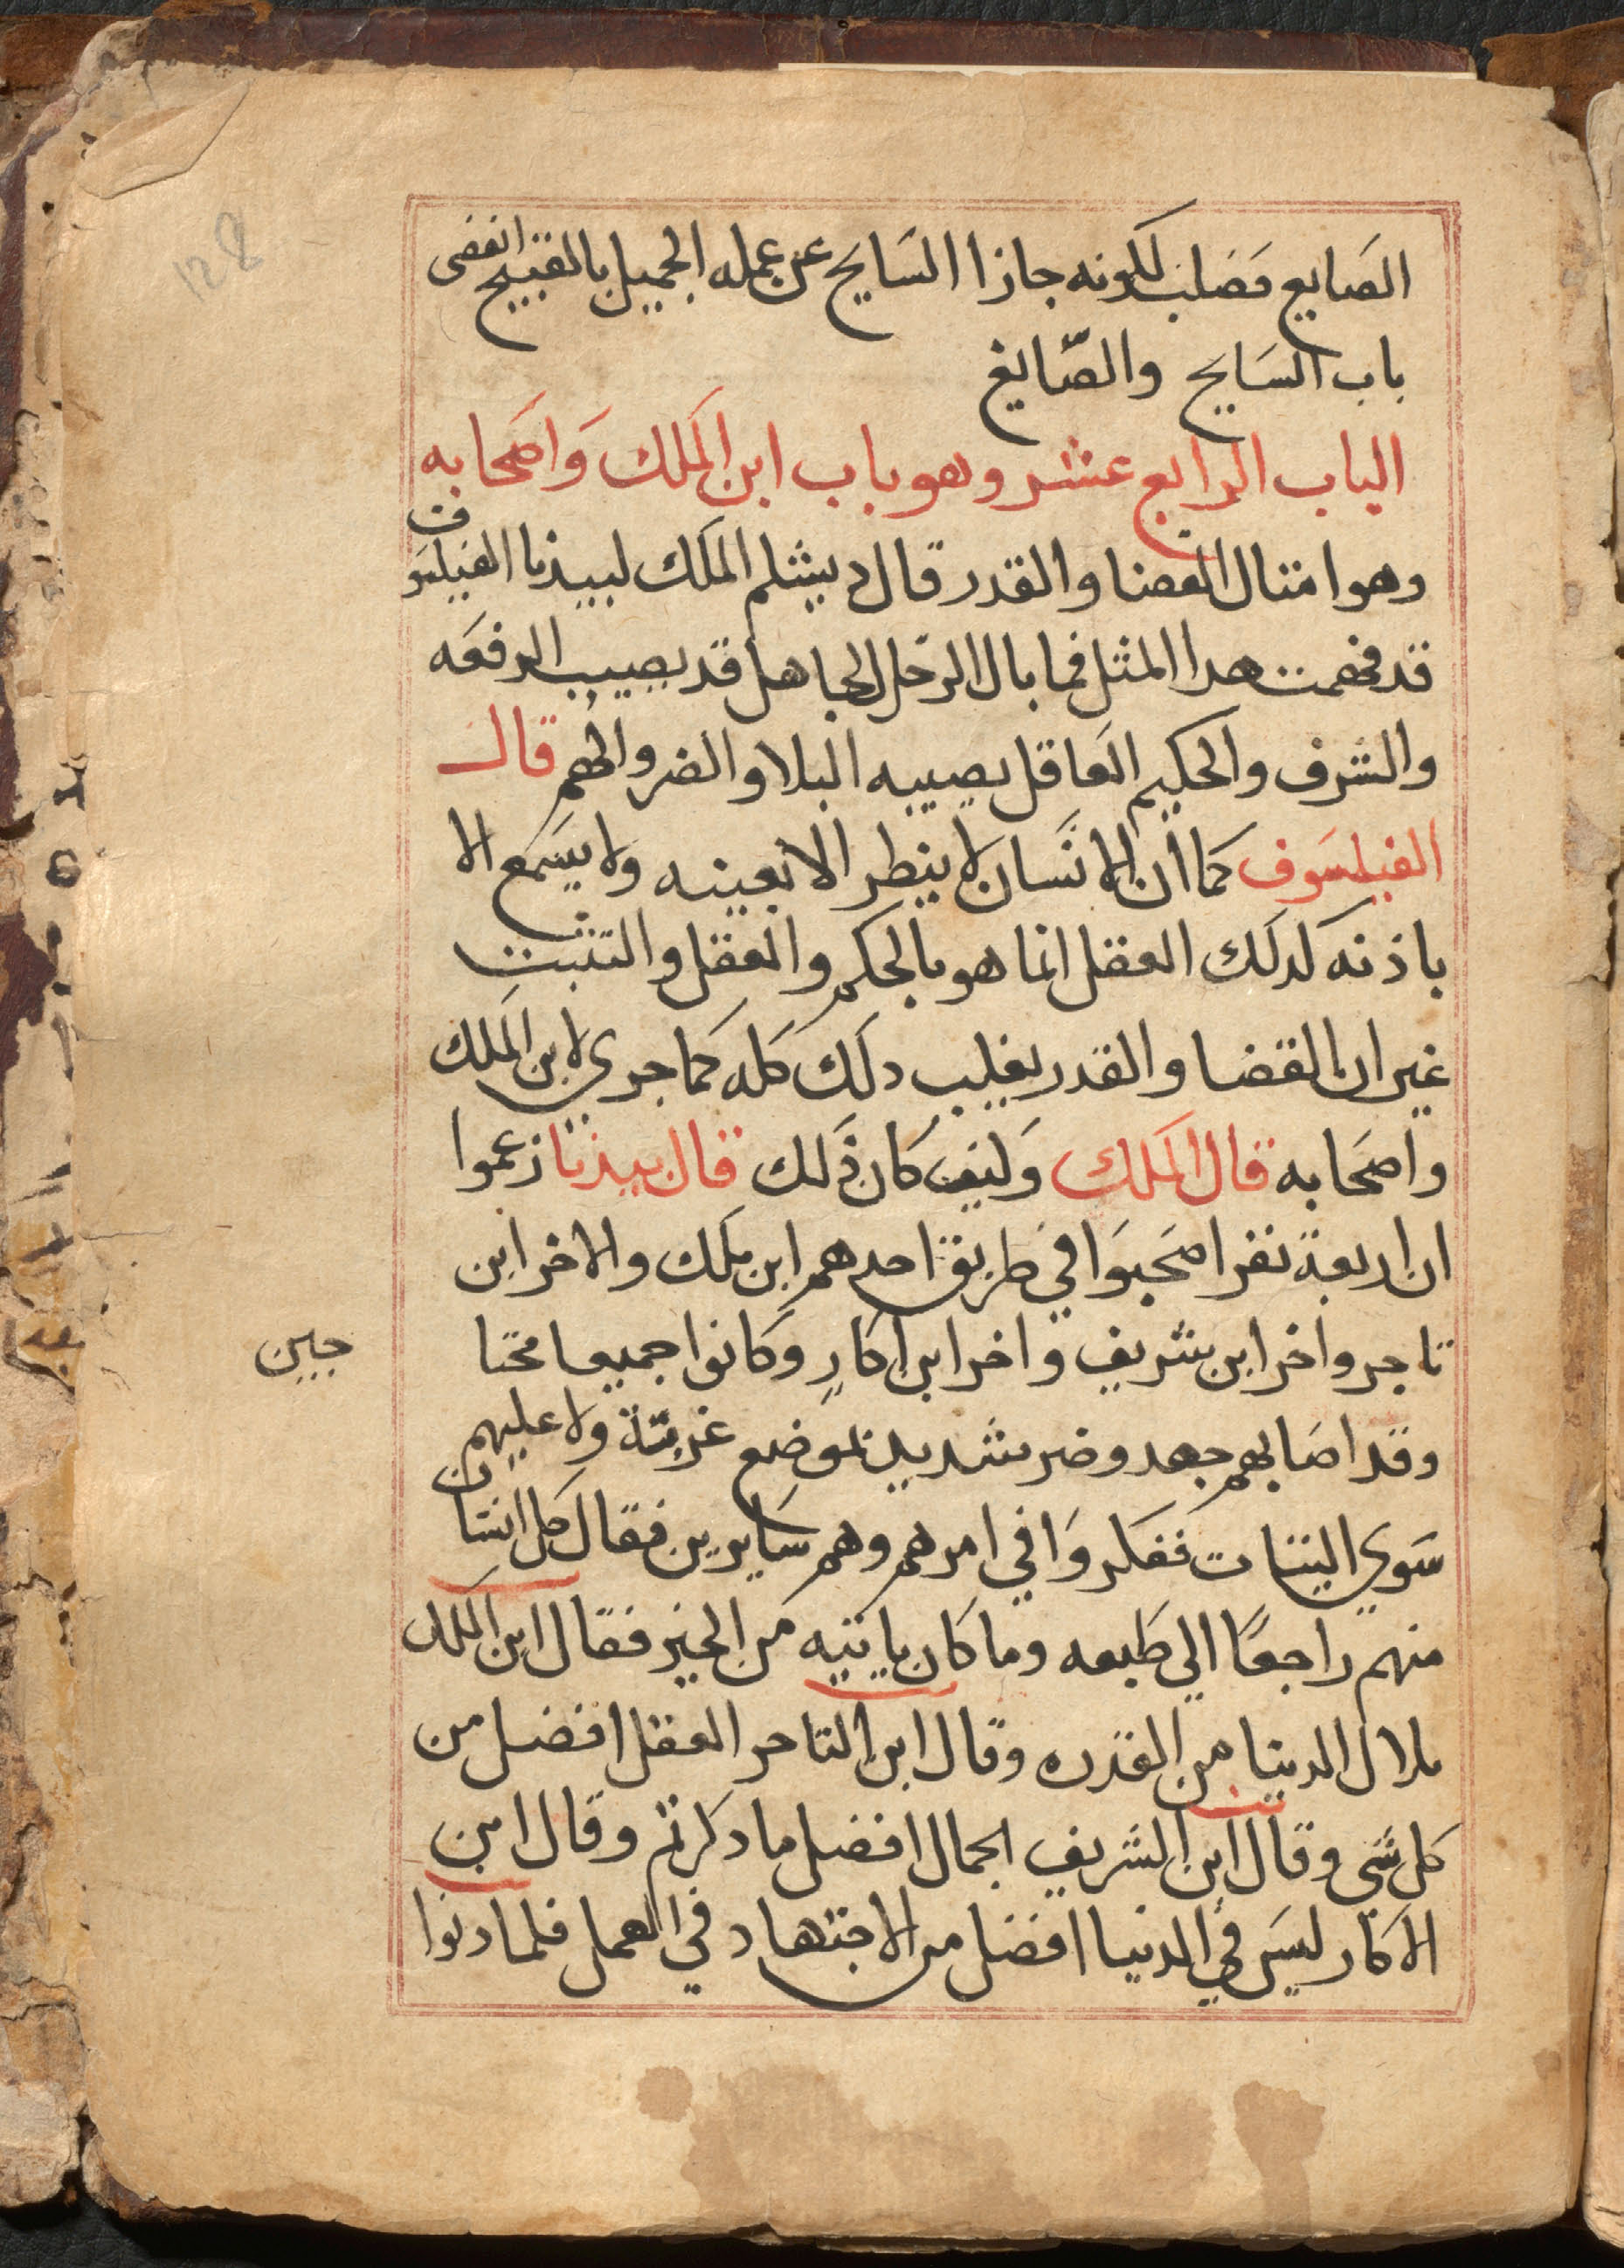 الصَايع فصلب لكونه جازا السَايح عن عمله الجميل بالقبيح انقضى
باب السَايح والصّايغ
الباب الرابع عشر وهو باب ابن الملك وَاصَحابه
وهو امتال القضا والقدر قال دبيشلم الملك لبيدبا الفيلسَوف
قد فهمت هدا المثل فما بال الرجل الجاهل قد يصيب الرفعَه
والشرف والحكيم العَاقل يصيبه البلا والضر والهم قال
الفيلسَوف كما ان الانسَان لا ينطر الا بعينه ولا يسَمع الا
باذنه كدلك العقل انما هو بالحكم والعقل والتثبت
غير ان القضا والقدر يغلب دلك كله كما جري لابن الملك
واصَحابه قال الملك وَكيف كان ذَلك قال بيدبا زعموا
ان اربعة نفر اصحَبوَا في طريق احدهم ابن ملك والاخر ابن
تاجر واخر ابن شريف واخر ابن اكارٍ وكَانوا جميعا محتا
جين
وقد اصَابهم جهد وضر شديد بموضع غربّة ولا عليهم
سَوي التياب ففكروَا في امرهم وهم سَايرين فقال كل انسَان
منهم راجعًا الي طَبعه وما كان ياتيه من الخير فقال ابن الملك
ملال الدينا من القدره وقال ابن التاجر العقل افضل من
كل شَي وقال ابن الشريف الجمال افضل ما دكرتم وقال ابن
الاكار ليسَ في الدنيا افضل من الاجتهاد في العمل فلما دنوا
128